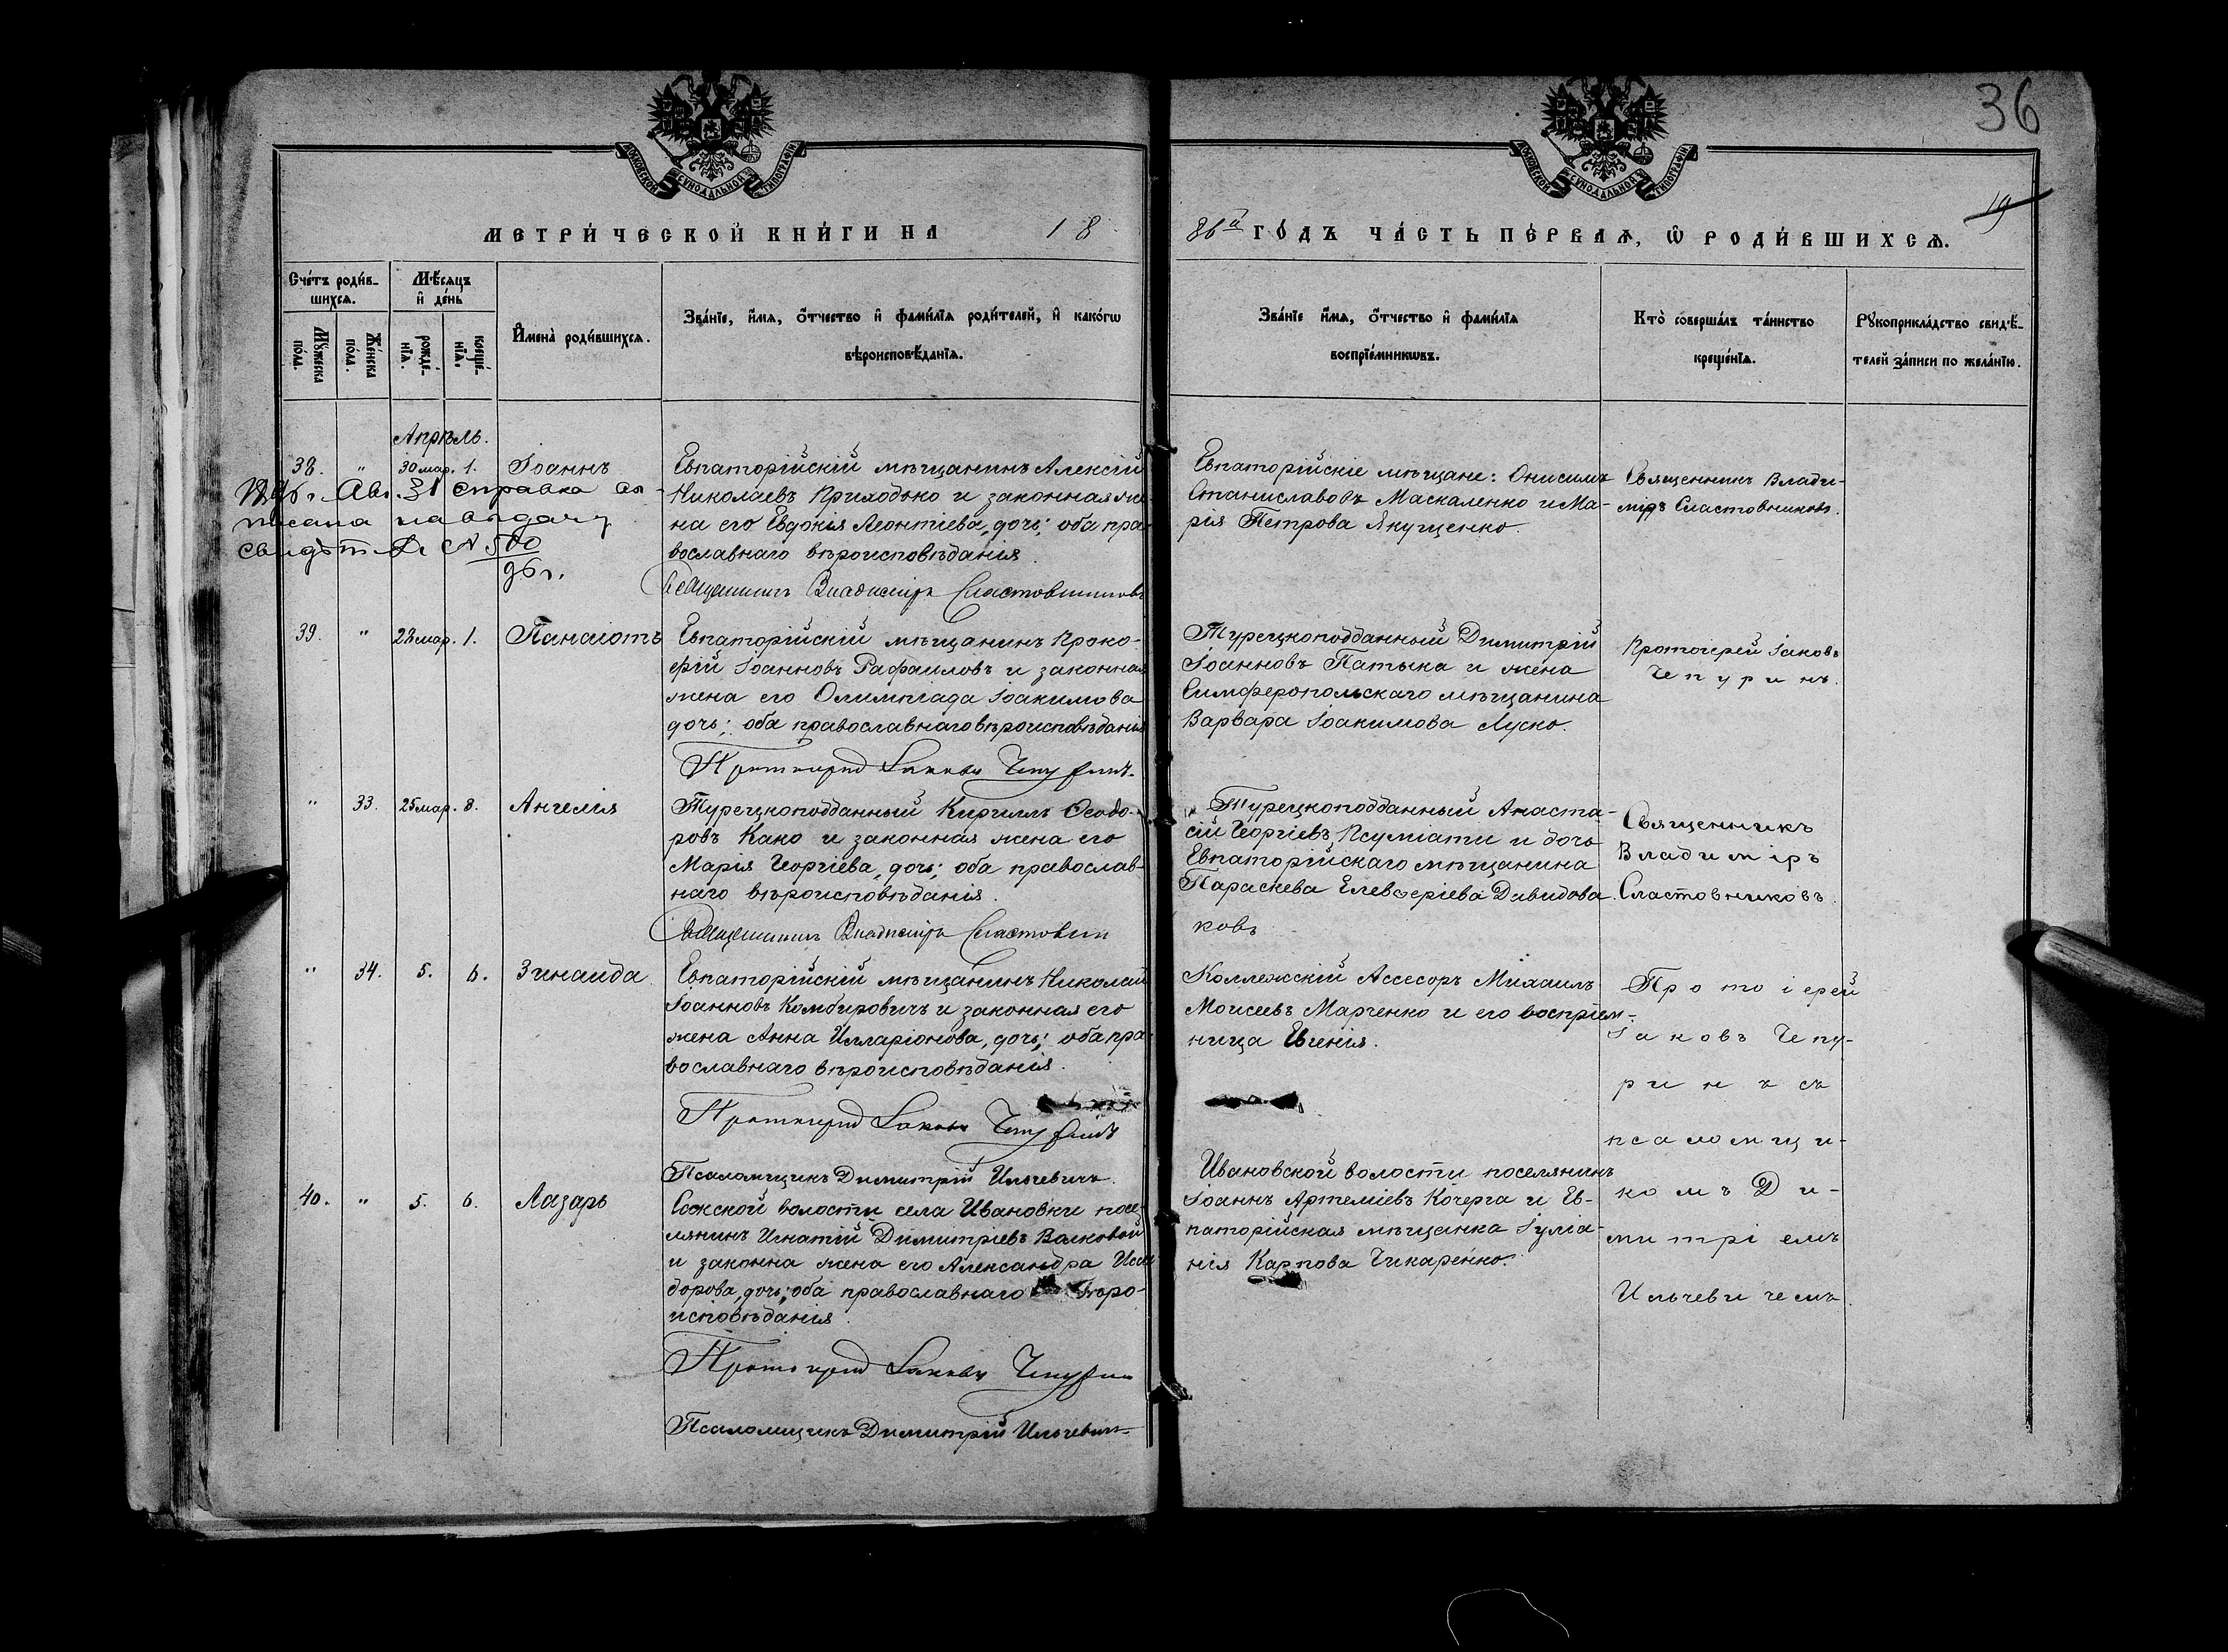 36
МОСКОВСКОЙ СѴНОДАЛЬНОЙ ТИПОГРАФІИ
МОСКОВСКОЙ СѴНОДАЛЬНОЙ ТИПОГРАФІИ
19
МЕТРИ́ЧЕСКОЙ КНИ́ГИ НА 18
86й ГО́ДЪ ЧА́СТЬ ПЕ́РВАѦ, Ѡ҆ РОДИ́ВШИХСѦ.
Сче́тъ роди́в-
шихсѧ.
Мѣ́сѧцъ
и҆ де́нь
Мꙋ́жеска по́ла.
Же́нска по́ла.
рожде́-нїѧ.
креще́-нїѧ.
И҆мена̀ роди́вшихсѧ.
Зва́нїе, и҆́мѧ, ѻ҆́тчество и҆ фами́лїѧ роди́телей, и҆ како́гѡ
вѣроисповѣ́данїѧ.
Зва́нїе и҆́мѧ, ѻ҆́тчество и҆ фами́лїѧ
воспрїе́мникѡвъ.
Кто̀ соверша́лъ та́инство
креще́нїѧ.
Рꙋкоприкла́дство свидѣ́-
телей за́писи по жела́нїю.
Апрѣль.
38. " 30 мар. 1. Іоаннъ
Евпаторійскій мѣщанинъ Алексій
Николаевъ Приходько и законная же-
на его Евдокія Леонтіева, дочь; оба пра-
вославнаго вѣроисповѣданія.
Священникъ Владиміръ Сластовниковъ
Евпаторійскіе мѣщане: Онисимъ
Станиславовъ Маскаленко и Ма-
рія Петрова Якущенко.
Священникъ Влади-
міръ Сластовниковъ.
Авг. 31 справка вы-
писана на выдачу
свидѣт. № 500
96 г.
39. " 28 мар. 1. Панаіотъ
Евпаторійскій мѣщанинъ Проко-
фій Іоанновъ Рафаиловъ и законная
жена его Олимпіада Іоакимова
дочь; оба православнаго вѣроисповѣданія
Протоіерей Іаковъ Чепуринъ.
Турецкоподданный Димитрій
Іоанновъ Патыка и жена
Симферопольскаго мѣщанина
Варвара Іоакимова Луско.
Протоіерей Іаковъ
Чепуринъ.
" 33. 25 мар. 8. Ангелія
Турецкоподданный Кириллъ Ѳеодо-
ровъ Како и законная жена его
Марія Георгіева, дочь; оба православ-
наго вѣроисповѣданія.
Священникъ Владиміръ Сластовни
Турецкоподданный Анаста-
сій Георгіевъ Псуміати и дочь
Евпаторійскаго мѣщанина
Параскева Елевѳеріева Дивидова.
ковъ
Священникъ
Владиміръ
Сластовниковъ.
" 34. 5. 6. Зинаида
Евпаторійскій мѣщанинъ Николай
Іоанновъ Комбировичъ и законная его
жена Анна Илларіонова, дочь; оба пра-
вославнаго вѣроисповѣданія.
Протоіерей Іаковъ Чепуринъ
Псаломщикъ Димитрій Ильчевичъ.
Коллежскій Ассесоръ Михаилъ
Моисеевъ Марченко и его воспріем-
ница Евгенія.
Протоіерей
Іаковъ Чепу-
ринъ съ
псаломщи-
комъ Ди-
митріемъ
Ильчевичемъ.
40. " 5. 6. Лазарь
волости села Ивановки посе-
лянинъ Игнатій Димитріевъ Волковой
и законна жена его Александра Иси-
дорова, дочь; оба православнаго вѣро-
исповѣданія.
Протоіерей Іаковъ Чепурин
Псаломщикъ Димитрій Ильчевичъ
Ивановской волости поселянинъ
Іоаннъ Артеміевъ Кочерга и Ев-
паторійская мѣщанка Іуліа-
нія Карпова Чикаренко.